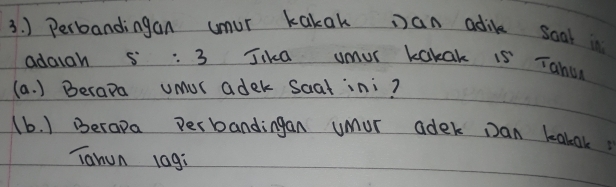 3.) Perbandingan umur kakak Dan adik saat in
adalah 5 : 3 Jika umur kakak 15 Tahun
(a.) Berapa umur adek saat ini?
(b.) Berapa Perbandingan umur adek Dan kakak 5
Tahun lagi